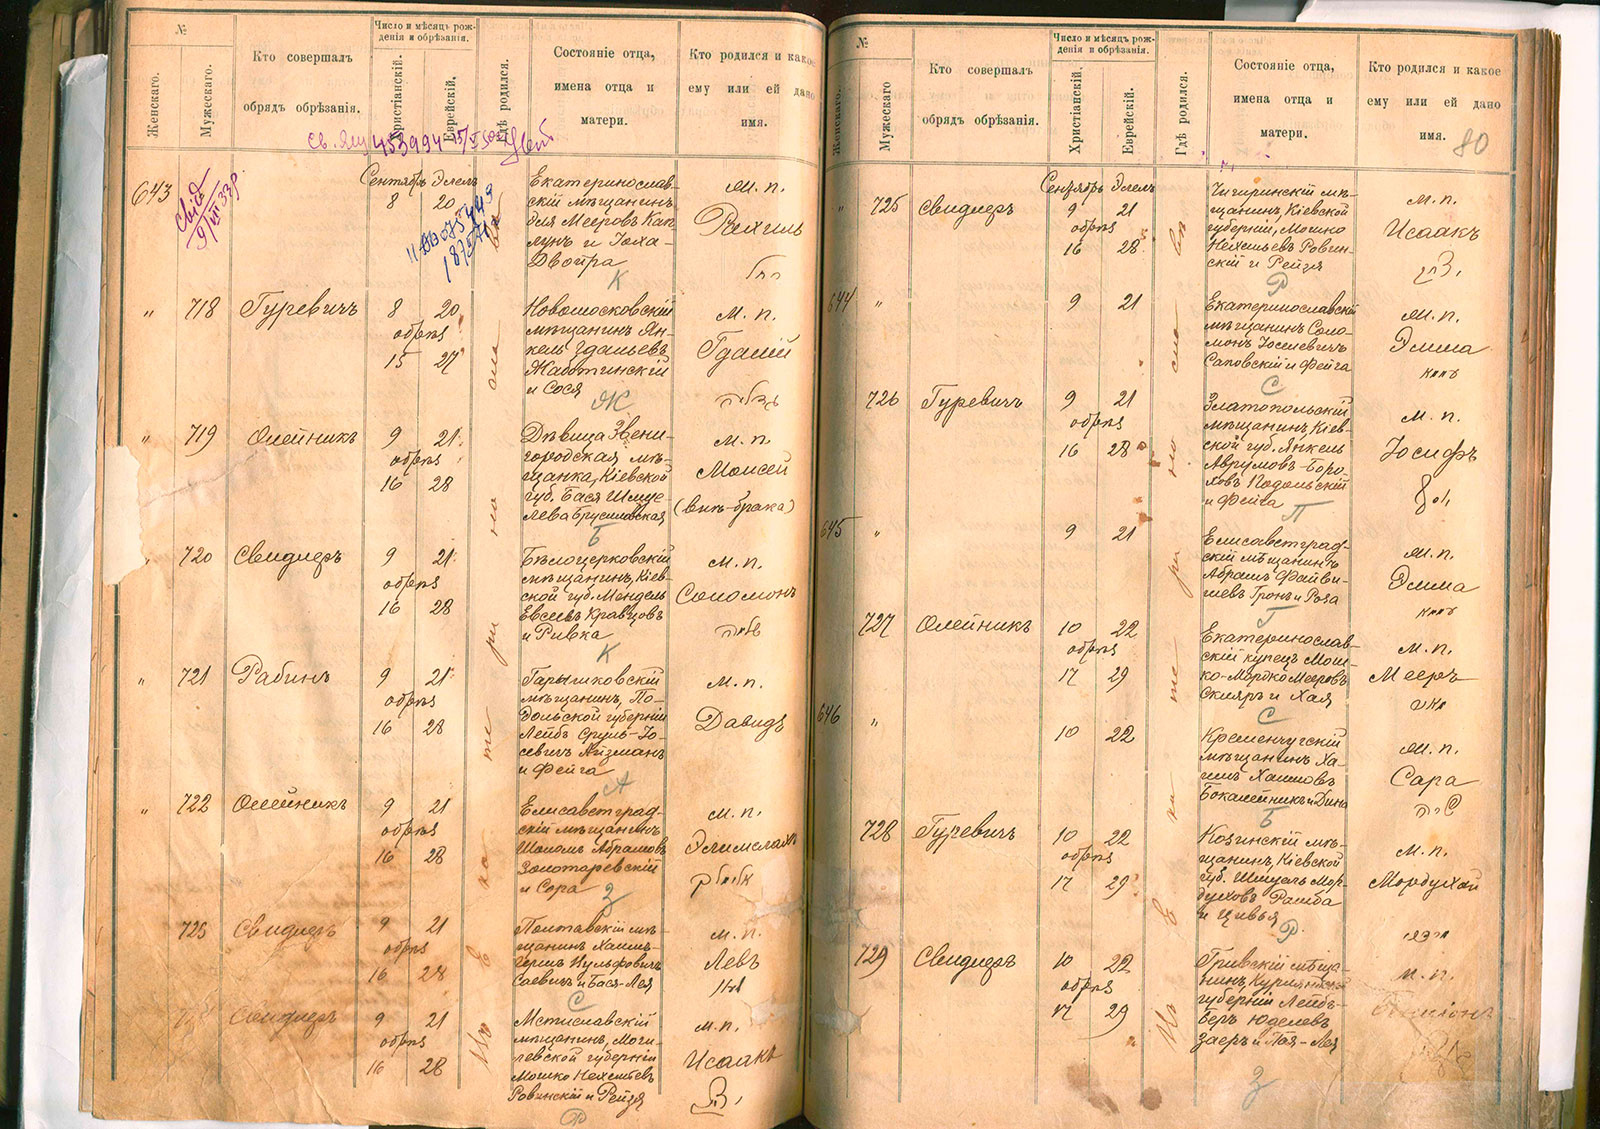 №
Женскаго.
Мужескаго.
Кто совершалъ
обрядъ обрѣзанія.
Число и мѣсяцъ рож-
денія и обрѣзанія.
Христіанскій.
Еврейскій.
Гдѣ родился.
Состояніе отца,
имена отца и
матери.
Кто родился и какое
ему или ей дано
имя.
453994
643
Сентябрь Элелъ
8 20
Екатеринослав-
скій мѣщанинъ
Мееровъ Кап-
лунъ и Хая-
Двойра
К
м. п.
Рахиль
רחל
" 718 Гуревичъ
8 20
обрѣз
15 27
Новомосковскій
мѣщанинъ Ян-
кель Здальевъ
Жаботинскій
и Сося
Ж
м. п.
Гдалій
גדליה
" 719 Олейникъ
9 21
обрѣз
16 28
Дѣвица Звени-
городская мѣ-
щанка, Кіевской
губ. Бася Шмуе-
лева Брусиловская
Б
м. п.
Моисей
(внѣ-брака)
" 720 Свидлеръ
9 21
обрѣз
16 28
Бѣлоцерковскій
мѣщанинъ, Кіев-
ской губ. Мендель
Евсеевъ Кравцовъ
и Ривка
К
м. п.
Соломонъ
שלמה
" 721 Рабинъ
9 21
обрѣз
16 28
мѣщанинъ, По-
дольской губерніи
Лейбъ Сруль-Іо-
севичъ Айзманъ
и Фейга
А
м. п.
Давидъ
" 722 Олейникъ
9 21
обрѣз
16 28
Елисаветград-
скій мѣщанинъ
Шолом Абрамовъ
Золотаревскій
и Сора
З
м. п.
Элимелахъ
אלימלך
723 Свидлеръ
9 21
обрѣз
16 28
Полтавскій мѣ-
щанинъ Хаимъ-
Гершъ Вульфовичъ
Саевичъ и Бася-Лея
С
м. п.
Левъ
Свидлеръ
9 21
обрѣз
16 28
Мстиславскій
мѣщанинъ, Моги-
левской губерніи
Мошко Нехемьевъ
Ровинскій и Рейзя
Р
м. п.
Исаакъ
Въ Екатеринославѣ
№
Женскаго.
Мужескаго
Кто совершалъ
обрядъ обрѣзанія.
Число и мѣсяцъ рож-
денія и обрѣзанія.
Христіанскій.
Еврейскій.
Гдѣ родился.
Состояніе отца,
имена отца и
матери.
Кто родился и какое
ему или ей дано
имя.
80
" 725 Свидлеръ
Сентябрь Элелъ
9 21
обрѣз
16 28
Чигиринскій мѣ-
щанинъ, Кіевской
губерніи, Мошко
Нехемьевъ Ровин-
скій и Рейзя
Р
м. п.
Исаакъ
644 "
9 21
Екатеринославскій
мѣщанинъ Соло-
монъ Іосилевичъ
Саповскій и Фейга
С
м. п.
Элла
726 Гуревичъ
9 21
обрѣз
16 28
Златопольскій
мѣщанинъ, Кіев-
ской губ. Янкель
Аврумовъ-Боро-
ховъ Подольскій
и Фейга
П
м. п.
Іосифъ
645 "
9 21
Елисаветград-
скій мѣщанинъ
Абрамъ Файви-
шевъ Гронъ и Роза
Г
м. п.
Элла
727 Олейникъ
10 22
обрѣз
17 29
Екатеринослав-
скій купецъ Мош-
ко-Мордко Мееровъ
Скляръ и Хая
С
м. п.
Мееръ
646 "
10 22
Кременчугскій
мѣщанинъ Ха-
имъ Хаимовъ
Бокалейникъ и Дина
Б
м. п.
Сара
שרה
728 Гуревичъ
10 22
обрѣз
17 29
Козинскій мѣ-
щанинъ, Кіевской
губ. Шмуель Мор-
духовъ Рашба
и Цивья
Р
м. п.
Мордухай
מרדכי
729 Свидлеръ
10 22
обрѣз
17 29
Гривскій мѣща-
нинъ, Курляндск.
губерніи Лейбъ-
Беръ Юделевъ
Заеръ и Хая-Лея
З
м. п.
Въ Екатеринославѣ